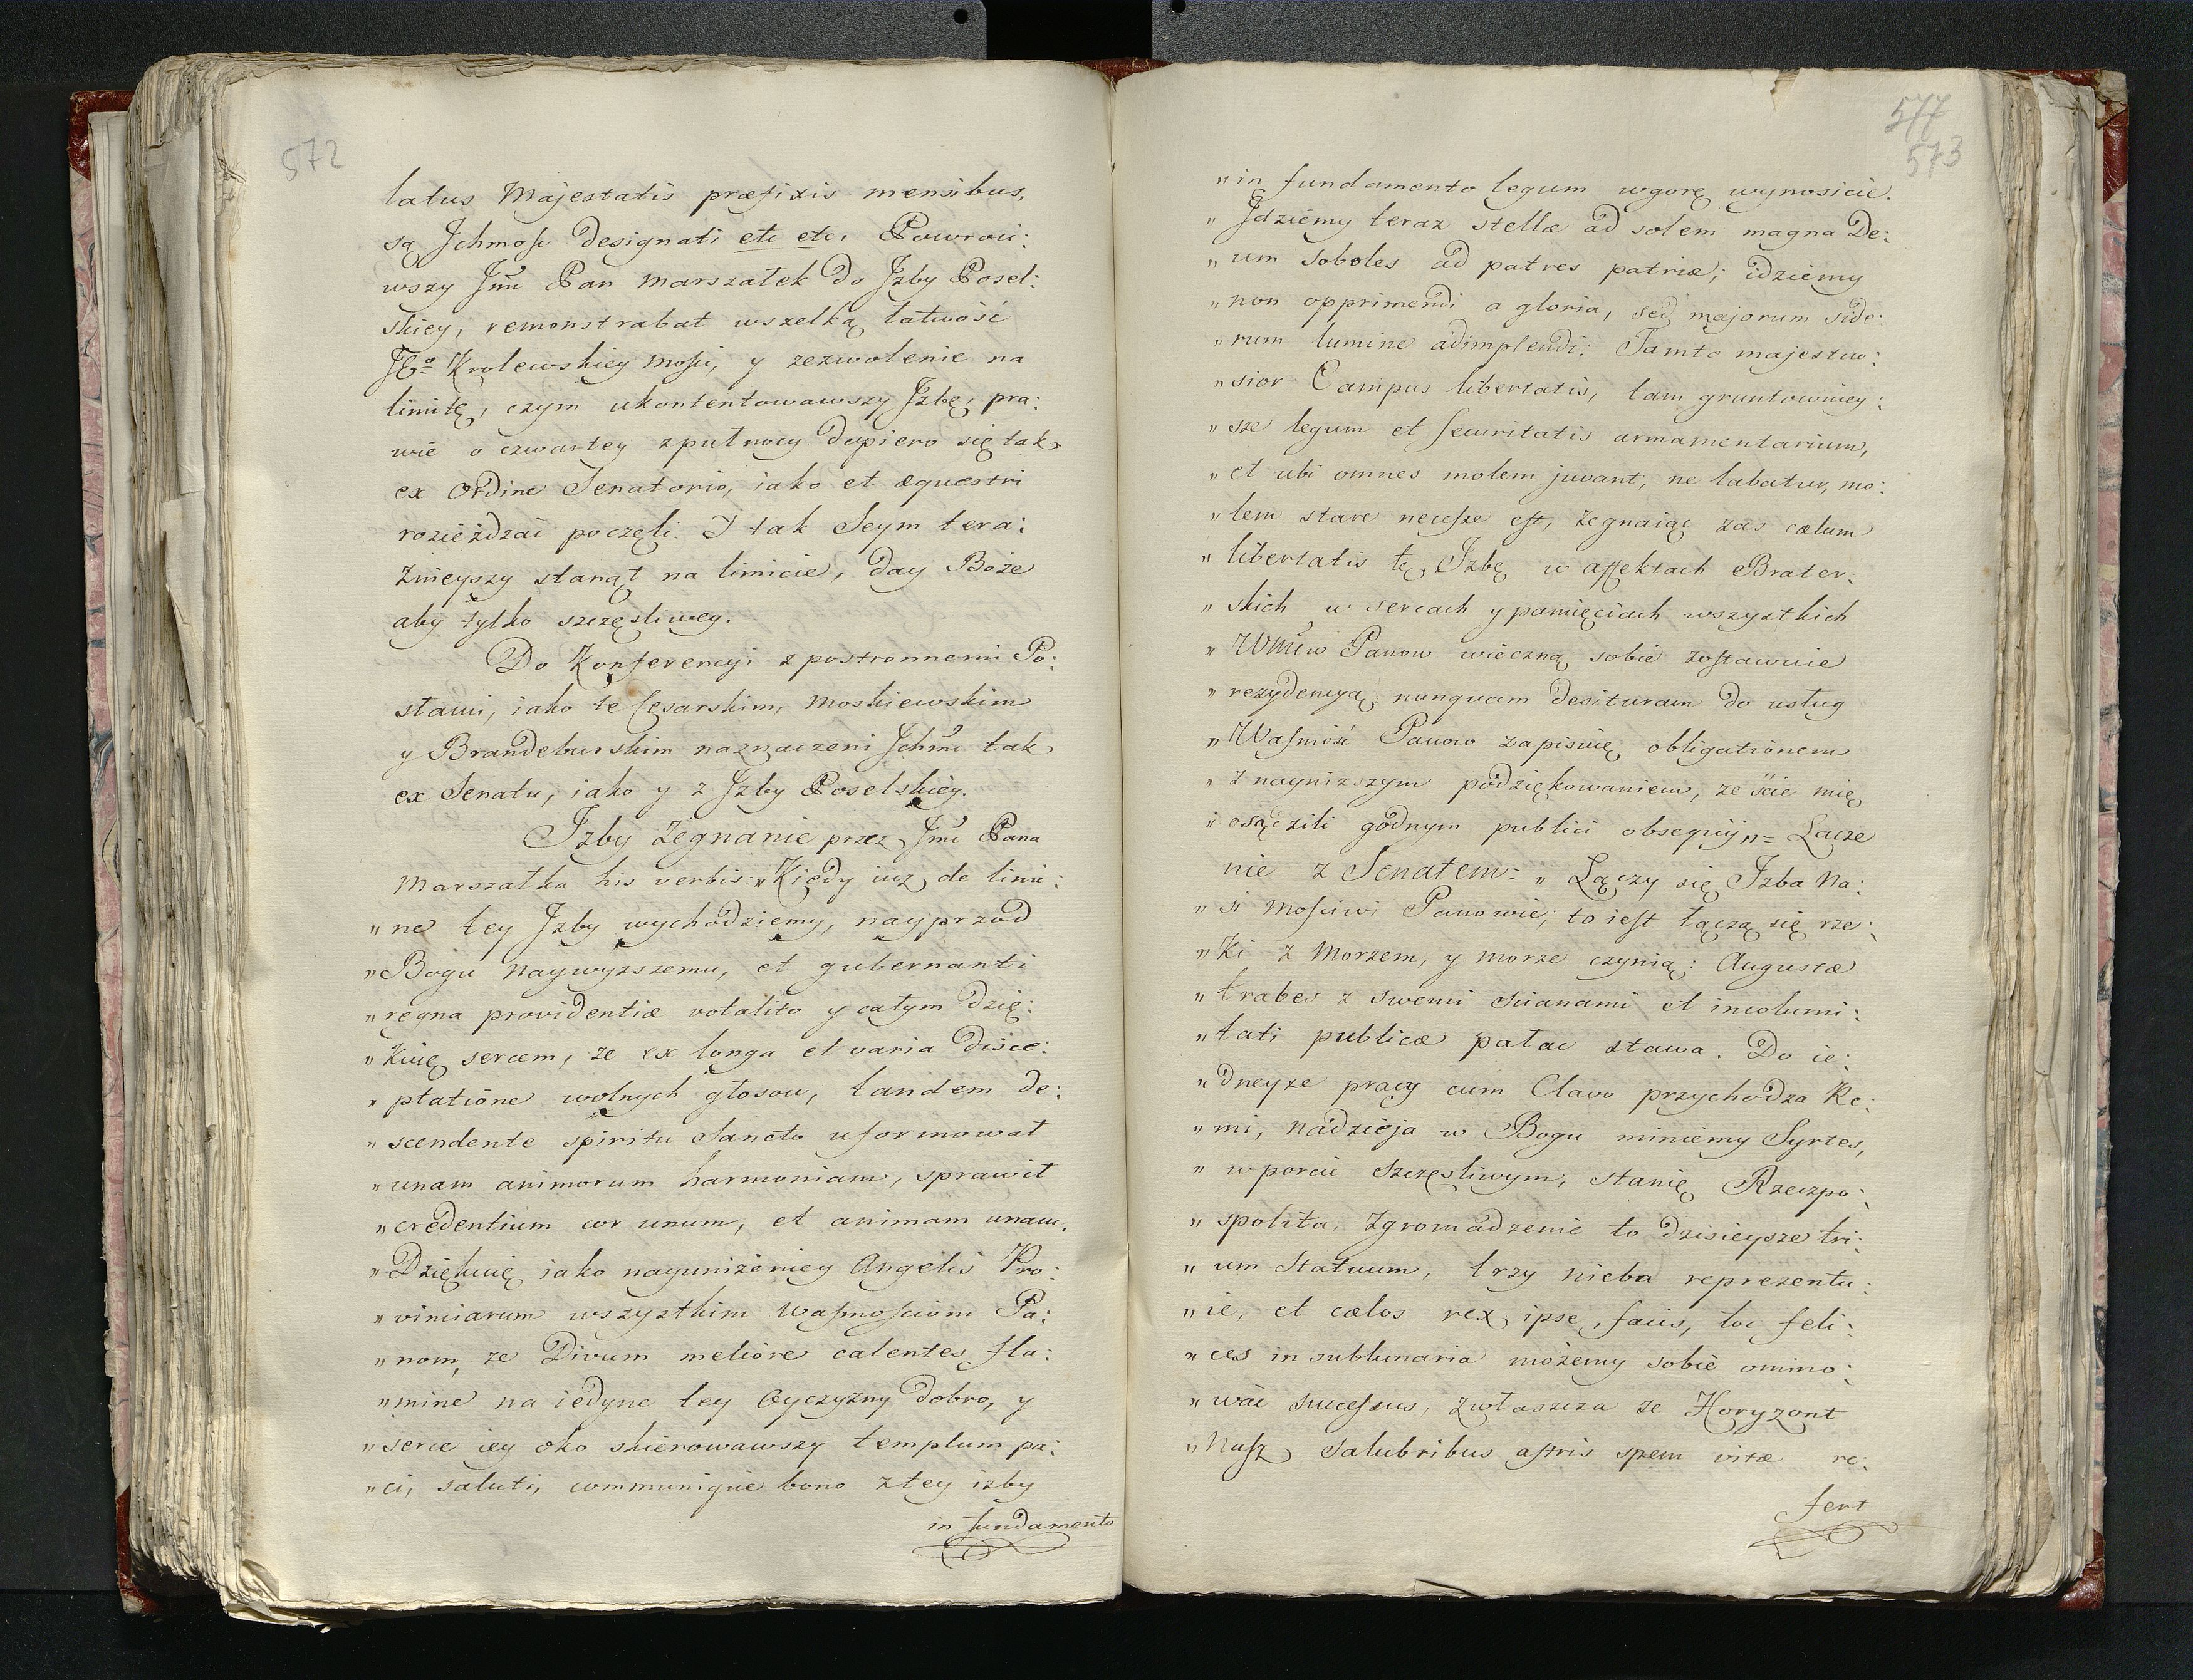 572
latus Majestatis præfixis mensibus,
są Jchmość designati etc etc. Powroci:
wszy Jmć Pan Marszałek do Jzby Posel:
skiey, remonstrabat wszelką łatwość
JEo Krolewskiey Mości, y zezwolenie na
limitę, czym ukontentowawszy Jzbę, pra:
wie o czwartey z pułnocy dopiero się tak
ex Ordine Senatorio, iako et æquestri
rozieżdzać poczęli. I tak Seym tera:
znieyszy stanął na limicie, day Boże
aby tylko szczęsliwey.
Do Konferencyi z postronnemi Po:
słami, iako te Cesarskim, Moskiewskim
y Brandeburskim naznaczeni Jchmć tak
ex Senatu, iako y z Jzby Poselskiey.
Izby Zegnanie przez Jmć Pana
Marszałka his verbis: „Kiedy iuż de limi:
„ne tey Jzby wychodziemy, nayprzod
„Bogu Naywyzszemu, et gubernanti
„regna providentiæ votalito y całym dzię:
„kuię sercem, ze ex longa et varia disce:
„ptatione wolnych głosow, tandem de:
„scendente spiritu Sancto uformował
„unam animorum harmoniam, sprawił
„credentium cor unum, et animam unam.
„Dziękuię iako nayuniżeniey Angelis Pro:
„vinciarum wszystkim Waszmościom Pa:
„nom, ze Divum meliore calentes fla:
„mine na iedyne tey Oyczyzny dobro, y
„serce iey oko skierowawszy templum pa:
„ci, saluti, communique bono z tey izby
in fundamento
577
573
„in fundamento legum wgorę wynosicie.
„Jdziemy teraz stellæ ad solem magna De:
„um Soboles ad patres patriæ; idziemy
„non opprimendi a gloria, sed majorum side:
„rum lumine adimplendi: Tamto majestuo:
„sior Campus libertatis, tam gruntowniey:
„sze legum et securitatis armamentarium,
„et ubi omnes molem juvant, ne labatur, mo:
„lem stare necesse est, zegnaiąc zas cælum
„libertatis tę Izbę w affektach Brater:
„skich w sercach y pamięciach wszystkich
„WMćiw Panow wieczną sobie zostawuie
„rezydencyą nunquam desituram do usług
„Waszmość Panow zapisuię obligationem
„z nayniższym podziękowaniem, ze ście mię
„osądzili godnym publici obsequij„= Łącze
nie z Senatem= „Łączy się Izba Na:
„si Mościwi Panowie; to iest łączą się rze:
„ki z Morzem, y morze czynią: Augustæ
„trabes z swemi scianami et incolumi:
„tati publicæ pałac stawa. Do ie:
„dneyze pracy cum Clavo przychodza Re:
„mi, nadzieja w Bogu miniemy Syrtes,
„w porcie szczęsliwym, stanię Rzeczpo:
„spolita. Zgromadzenie to dzisieysze tri:
„um Statuum, trzy nieba reprezentu:
„ie, et cælos rex ipse facis, toć feli:
„ces in sublunaria możemy sobie omino:
„wać successus, zwłaszcza ze Horyzont
„Nasz salubribus astris spem vitæ re:
fert